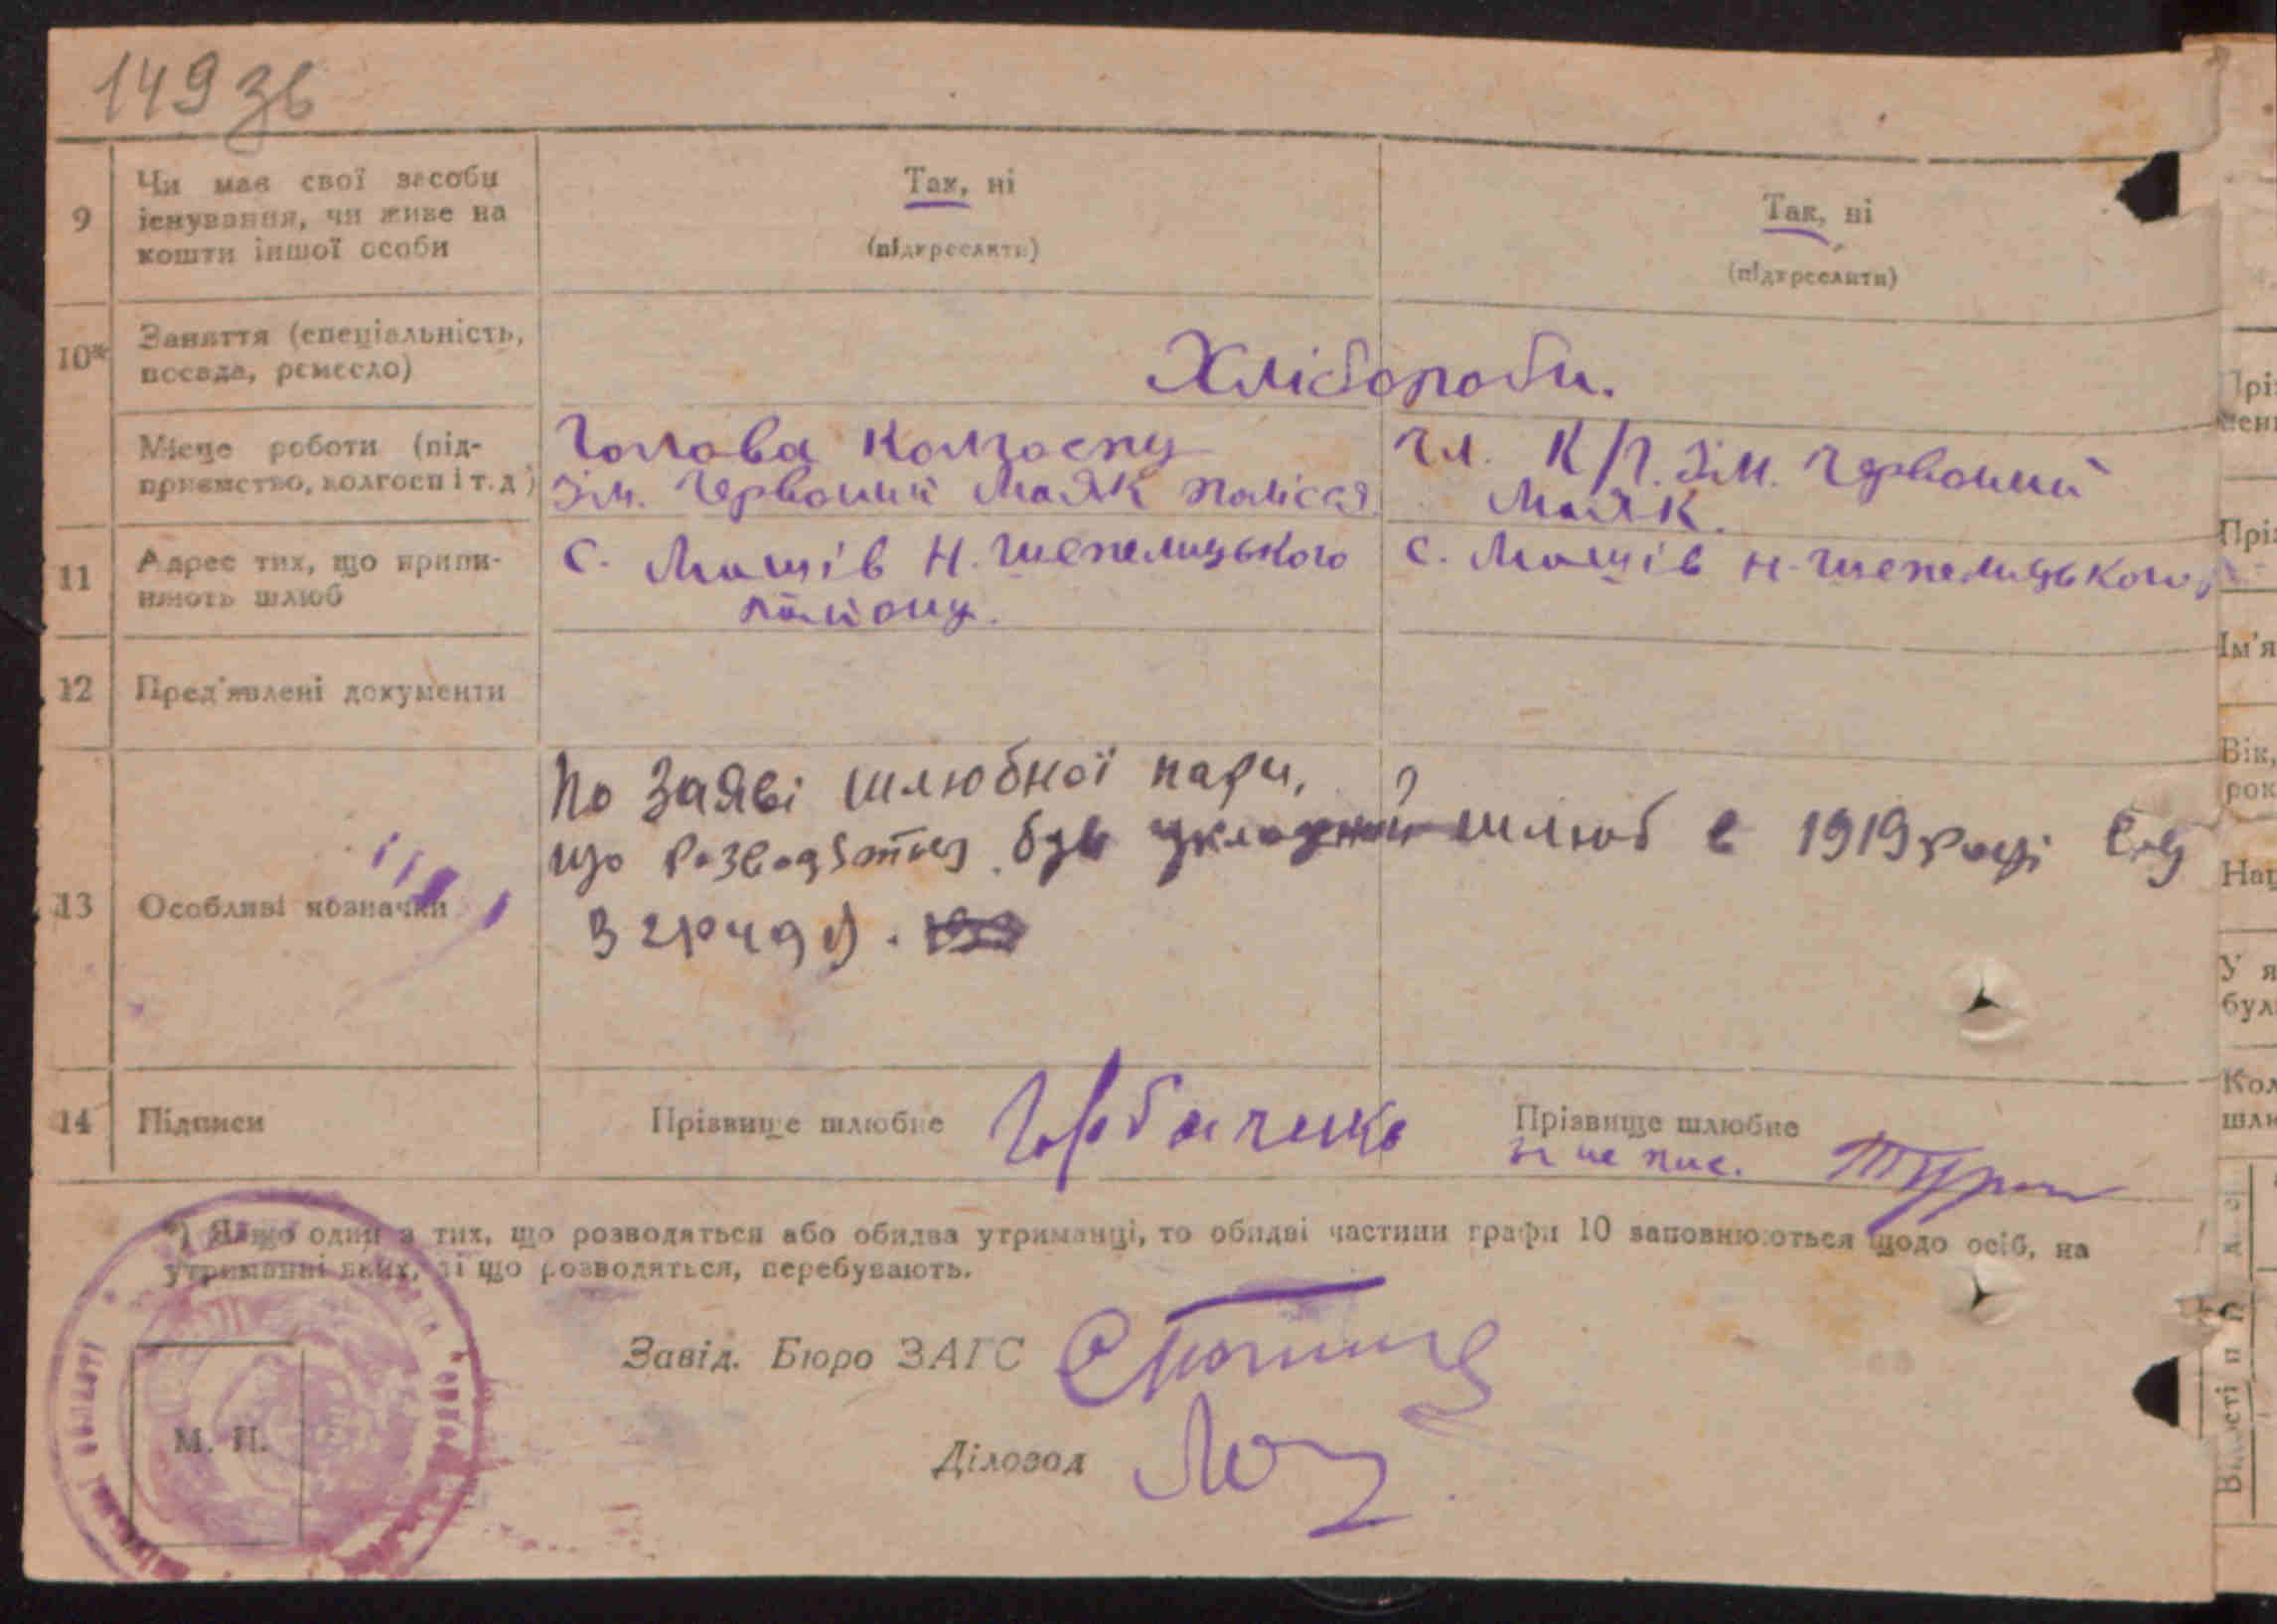 149 зв
9
Чи має свої засоби
існування, чи живе на
кошти іншої особи
Так, ні
(підкреслити)
Так, ні
(підкреслити)
10*
Заняття (спеціальність,
посада, ремесло)
Хлібороби.
Місце роботи (під-
приємство, колгосп і т.д)
Голова Колгоспу
ім. Червоний Маяк
чл. К/Г. ім. Червоний
Маяк.
11
Адрес тих, що припи-
няють шлюб
с. Машів Н. Шепелицького
району.
с. Машів Н-Шепелицького
12
Пред'явлені документи
13
Особливі нозначки
По заяві шлюбної пари,
що розводяться був шлюб в 1919 році
14
Підписи
Прізвище шлюбне Горбаченко
Прізвище шлюбне
за не пис.
*) Якщо один з тих, що розводяться або обидва утриманці, то обидві частини графи 10 заповнюються щодо осіб, на
утриманні яких, ті що розводяться, перебувають.
Завід. Бюро ЗАГС
Діловод
М. П.